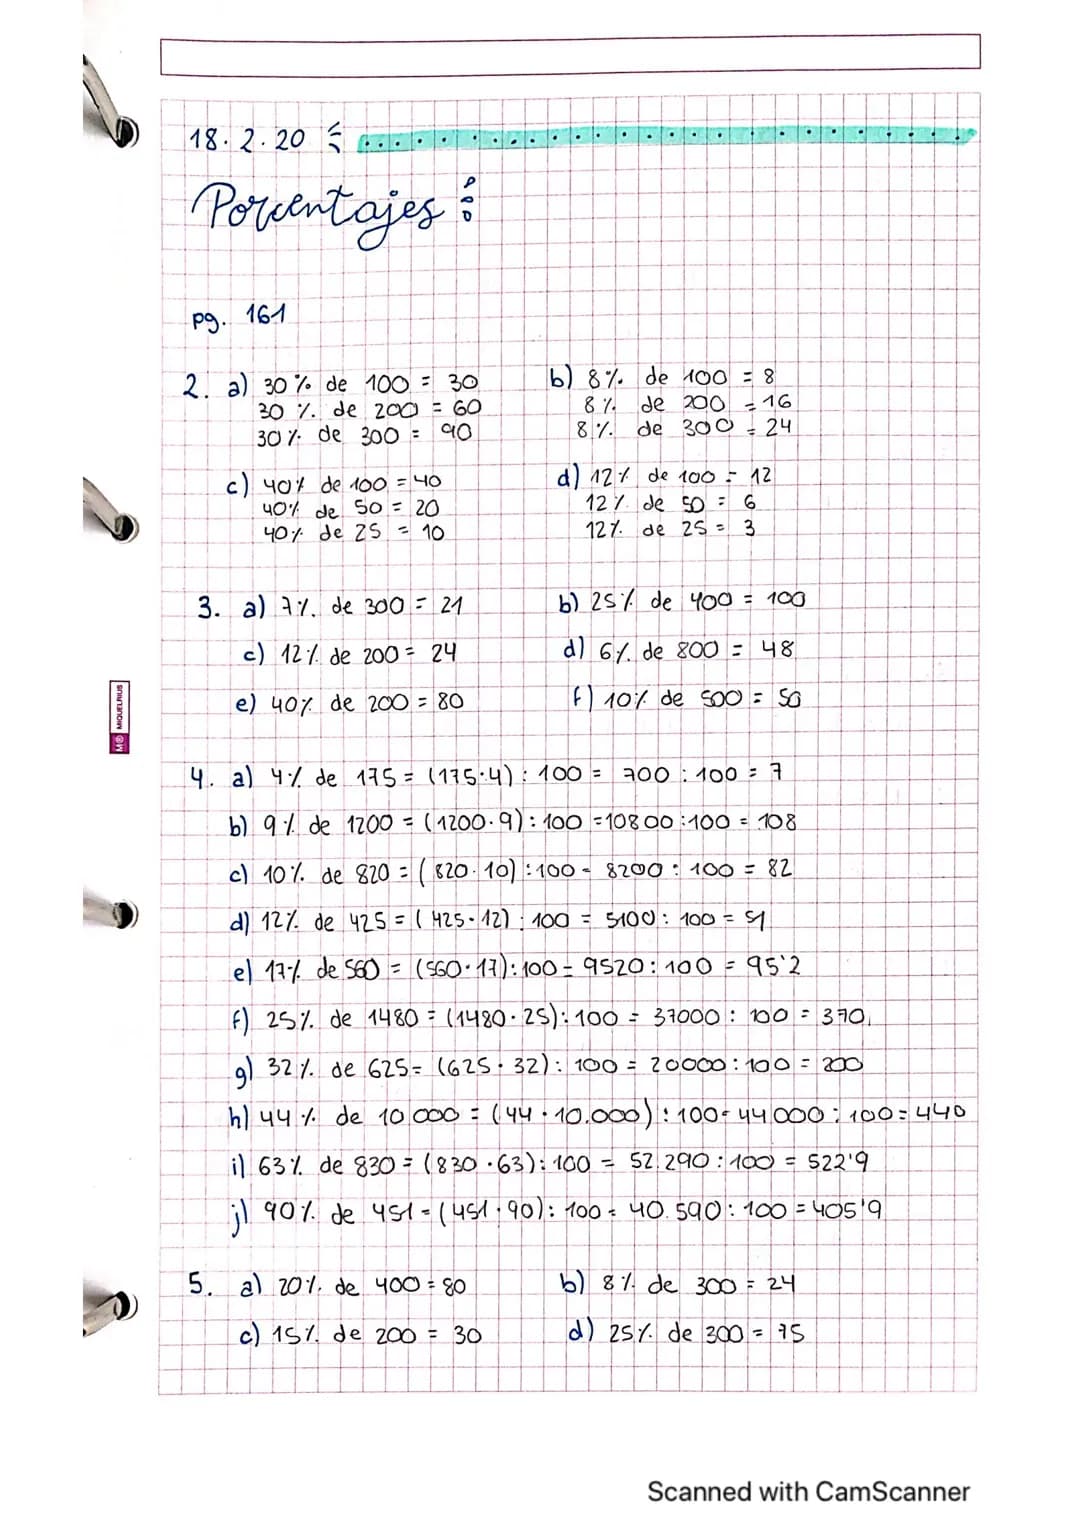 18.2.20
Porcentajes:
pg. 161
2. a) 30% de 100 = 30
30 % de 200 = 60
30% de 300 = 90
b) 8% de 100 = 8
8% de 200 = 16
8% de 300 = 24
c) 40% de 100 = 40
40% de 50 = 20
40% de 25 = 10
d) 12% de 100 = 12
12% de 50 = 6
12% de 25 = 3
3. a) 7% de 300 = 21
b) 25% de 400 = 100
c) 12% de 200 = 24
d) 6% de 800 = 48
e) 40% de 200 = 80
f) 10% de 500 = 50
4. a) 4% de 175 = (175·4) : 100 = 700 : 100 = 7
b) 9% de 1200 = (1200·9) : 100 = 10800 : 100 = 108
c) 10% de 820 = (820·10) : 100 = 8200 : 100 = 82
d) 12% de 425 = (425·12) : 100 = 5100 : 100 = 51
e) 17% de 560 = (560·17) : 100 = 9520 : 100 = 95'2
f) 25% de 1480 = (1480·25) : 100 = 37000 : 100 = 370
g) 32% de 625 = (625·32) : 100 = 20000 : 100 = 200
h) 44% de 10.000 = (44·10.000) : 100 = 44.000 : 100 = 440
i) 63% de 830 = (830·63) : 100 = 52.290 : 100 = 522'9
j) 90% de 451 = (451·90) : 100 = 40.590 : 100 = 405'9
5. a) 20% de 400 = 80
b) 8% de 300 = 24
c) 15% de 200 = 30
d) 25% de 300 = 75
MIQUELRIUS
Scanned with CamScanner